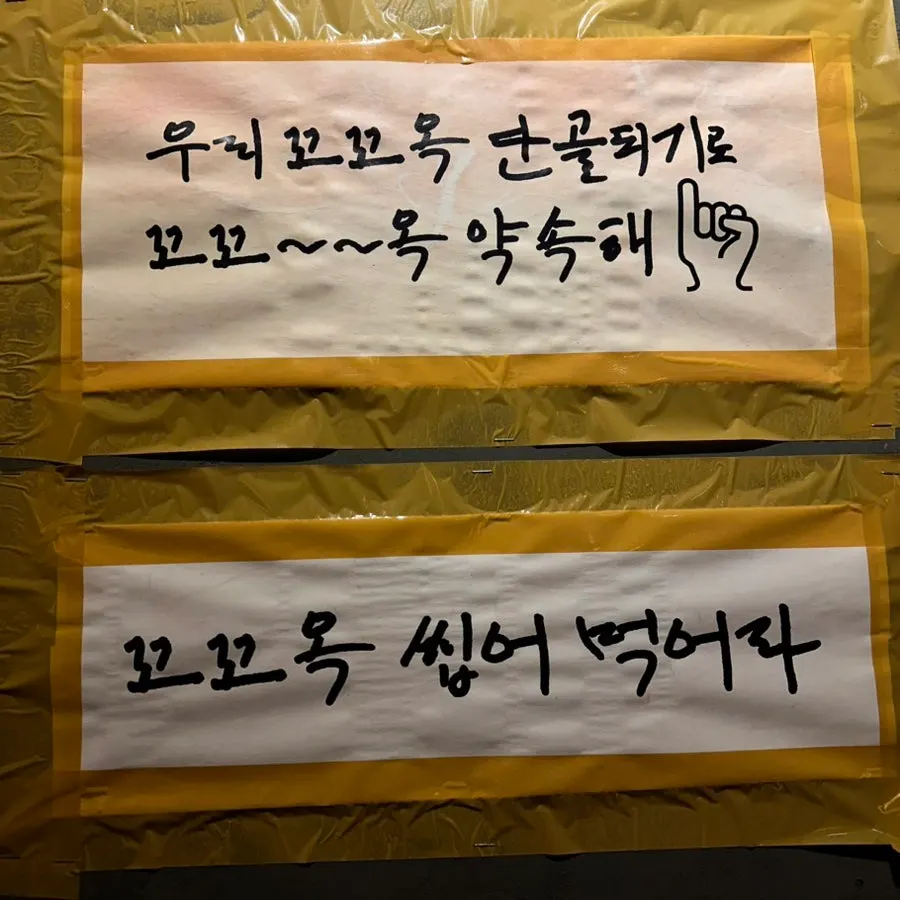 우리 꼬꼬옥 단골되기로
꼬꼬~~옥 약속해
꼬꼬옥 씹어 먹어라